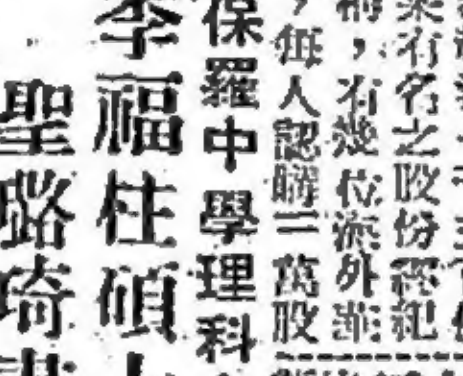 業有名之股份經紀
，有幾位海外華
，每人認購二萬股
保羅中學理科
李福柱碩
聖璐琦書